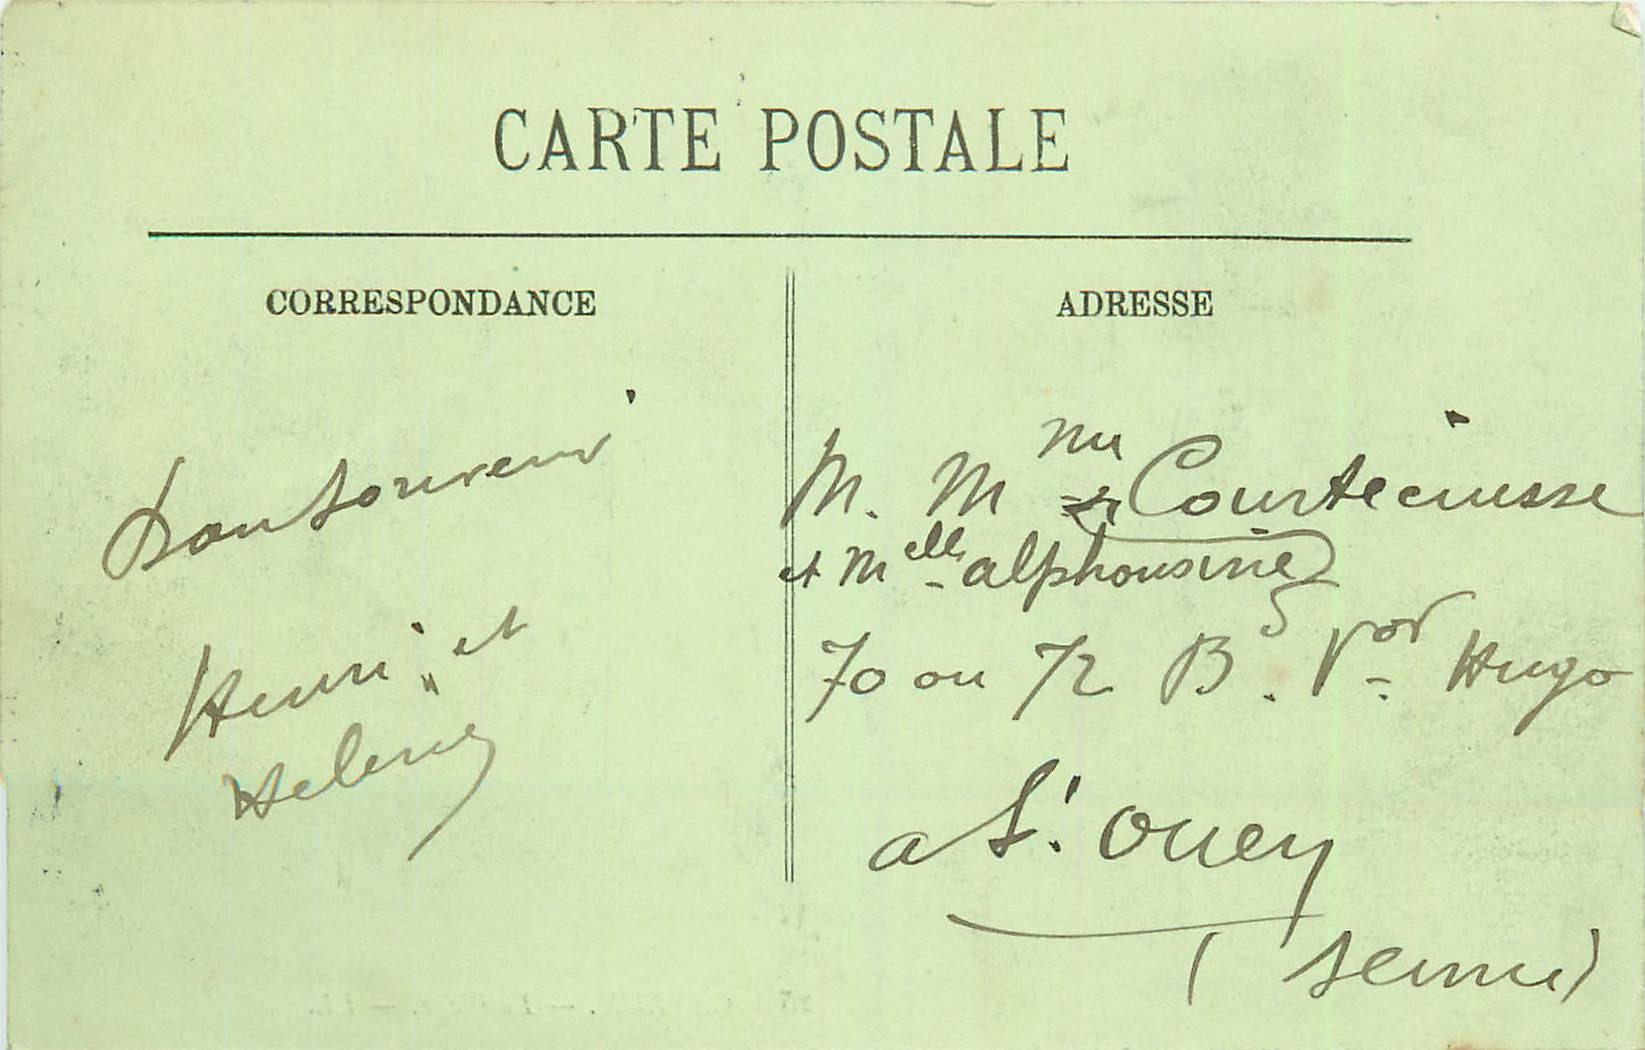 CARTE POSTALE
CORRESPONDANCE
Bon Souvenir
Henri et
Helene
ADRESSE
M. Mme Courtecuisse
et Melle alphonsine
70 ou 72 Bd. Vor Hugo
a St. Ouen
(Seine)